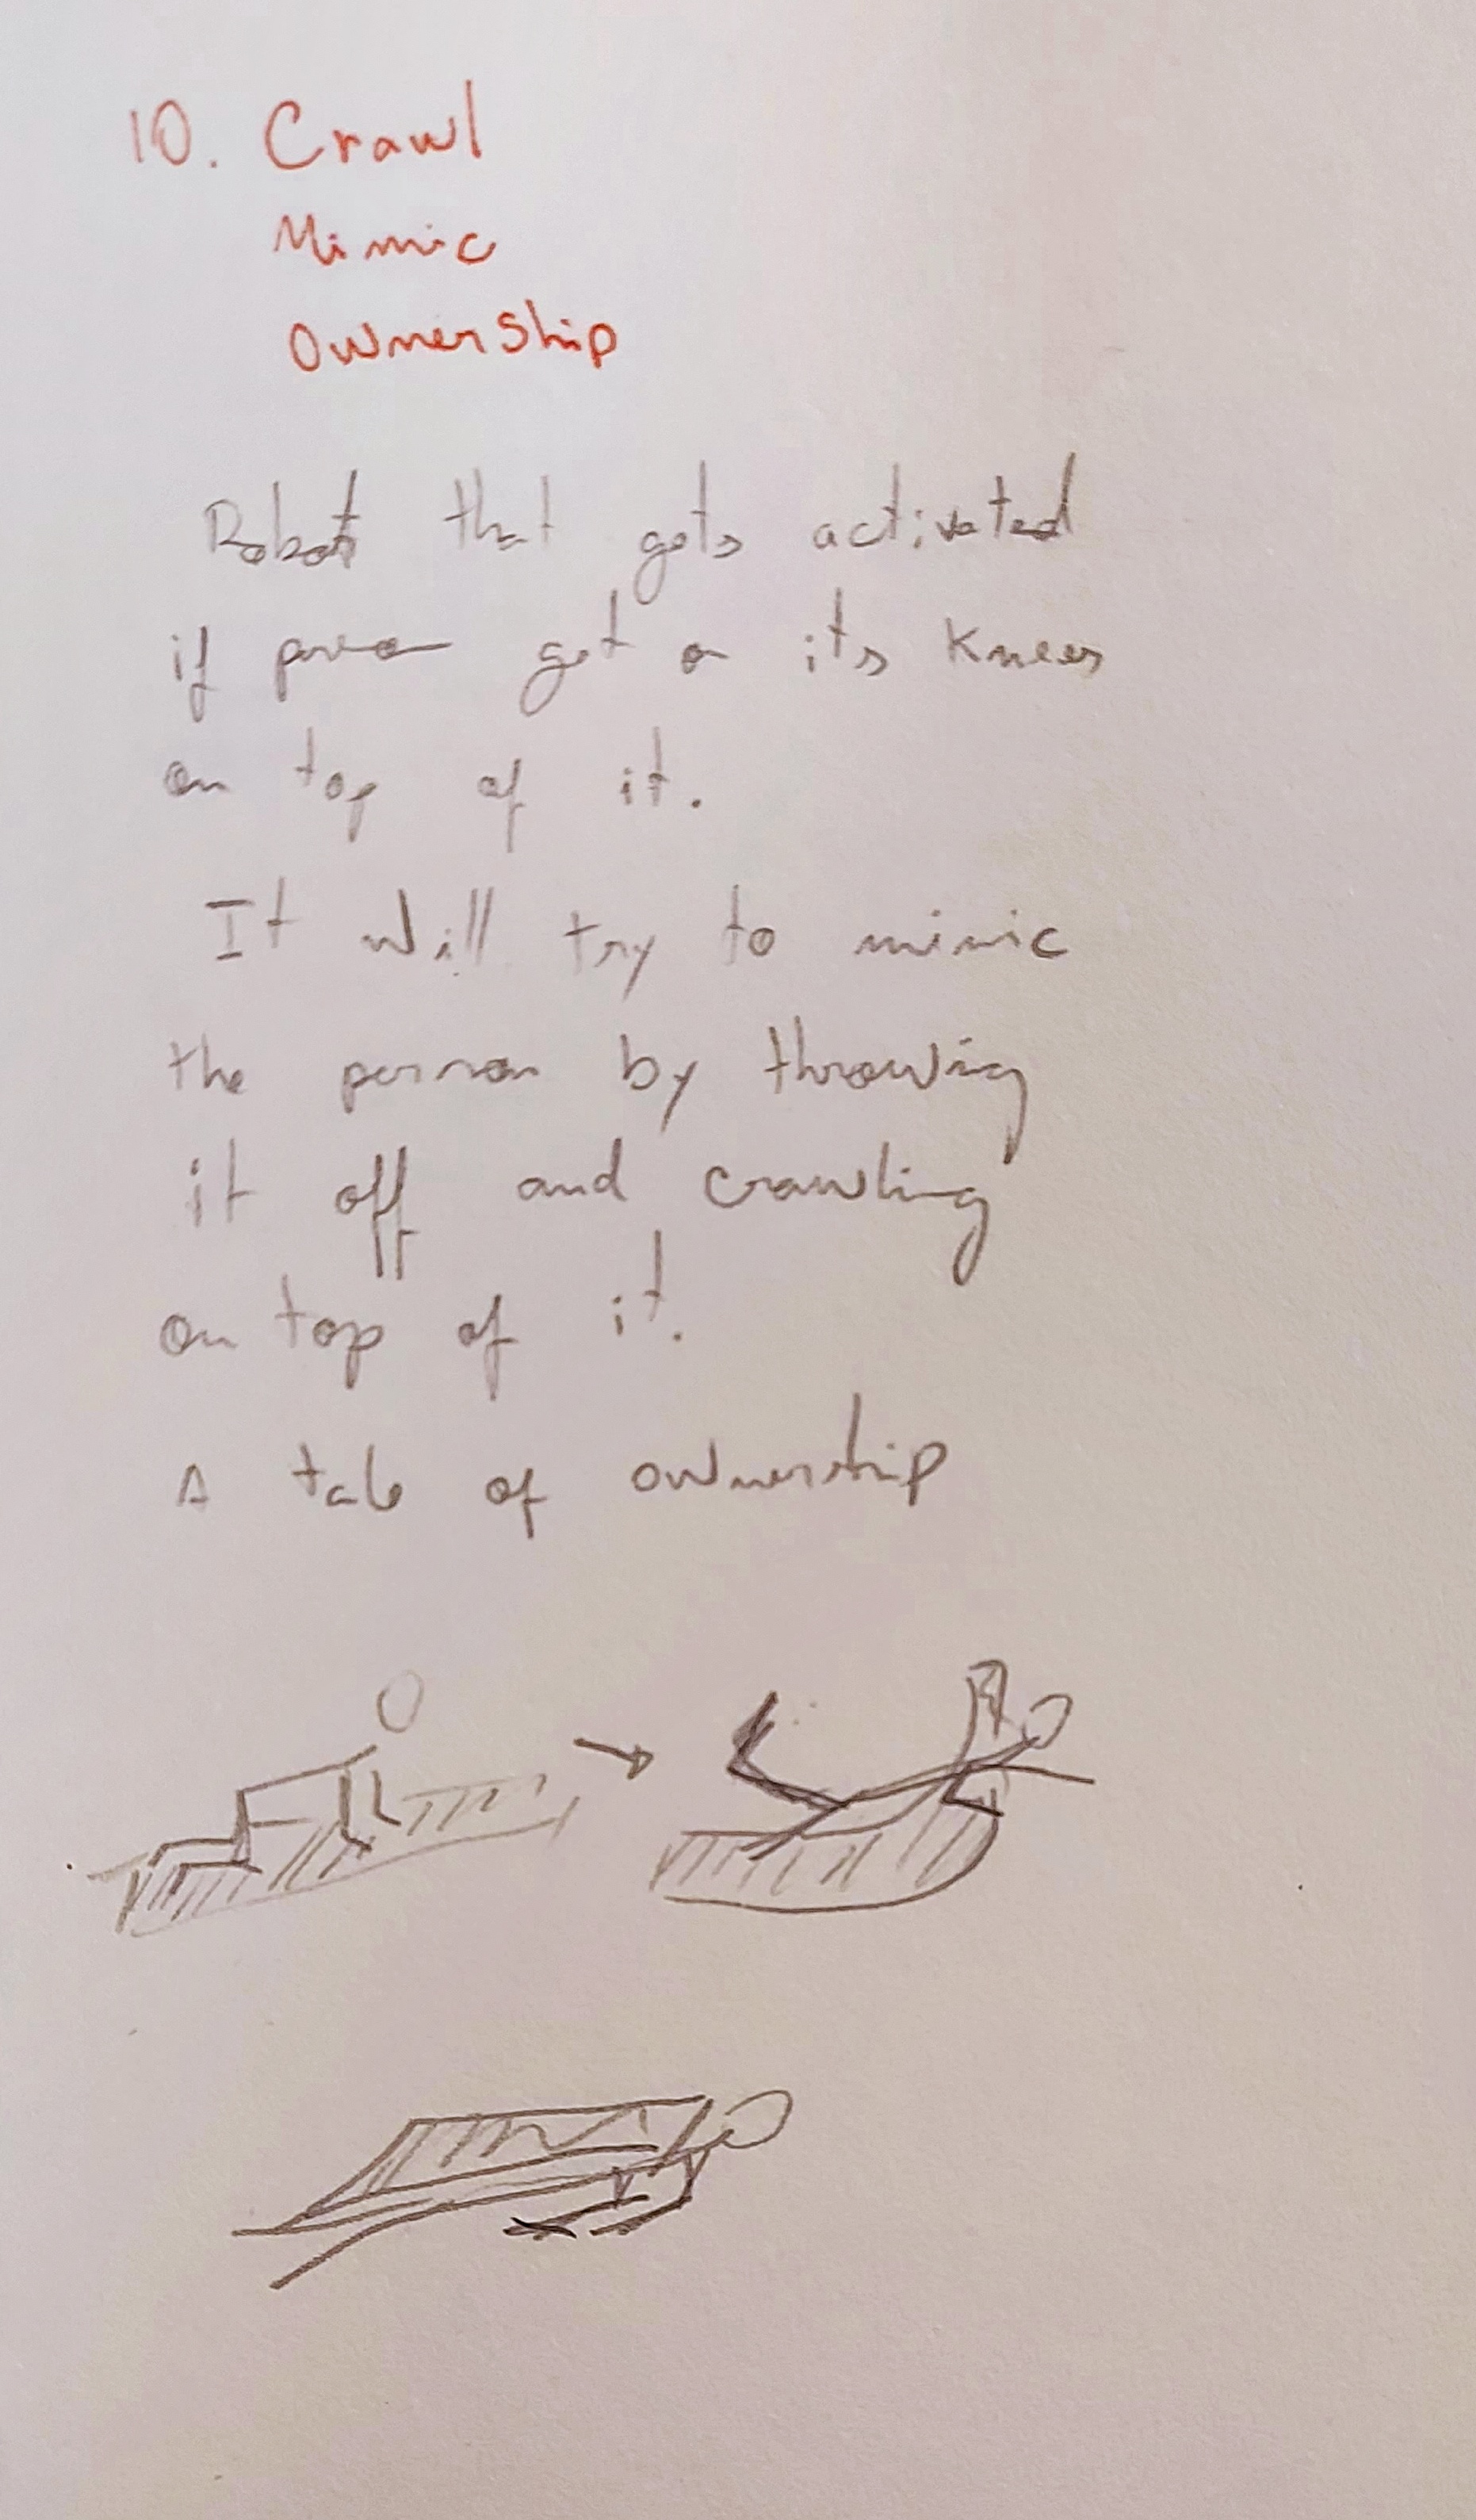 10. Crawl
Mimic
Ownership
Robot that gets activated
if person get on its knees
on top of it.
It will try to mimic
the person by throwing
it off and crawling
on top of it.
A tale of ownership